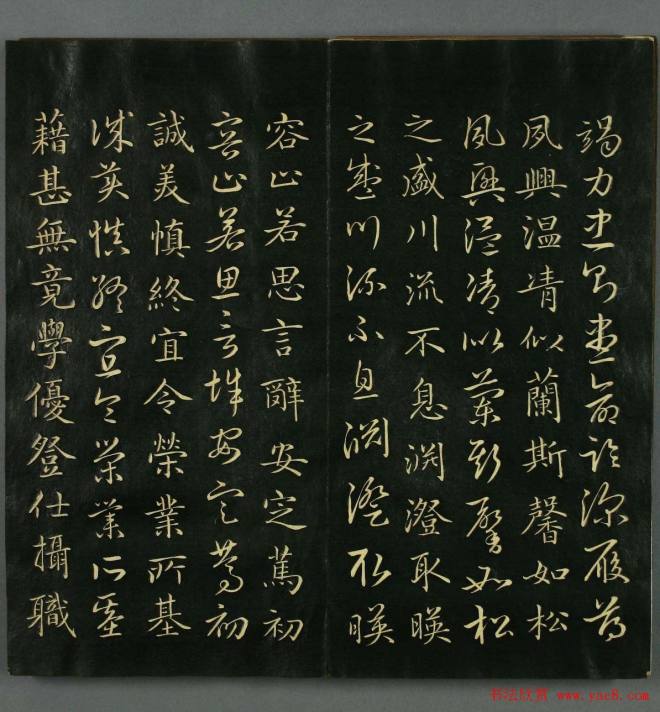 竭力忠則盡命臨深履薄
夙興温凊似蘭斯馨如松
夙興温凊似蘭斯馨如松
之盛川流不息渊澄取暎
之盛川流不息渊澄取暎
容止若思言辭安定篤初
容止若思言辭安定篤初
誠美慎終宜令榮業所基
誠美慎終宜令榮業所基
藉甚無竟學優登仕攝職
书法欣赏 www.yac8.com